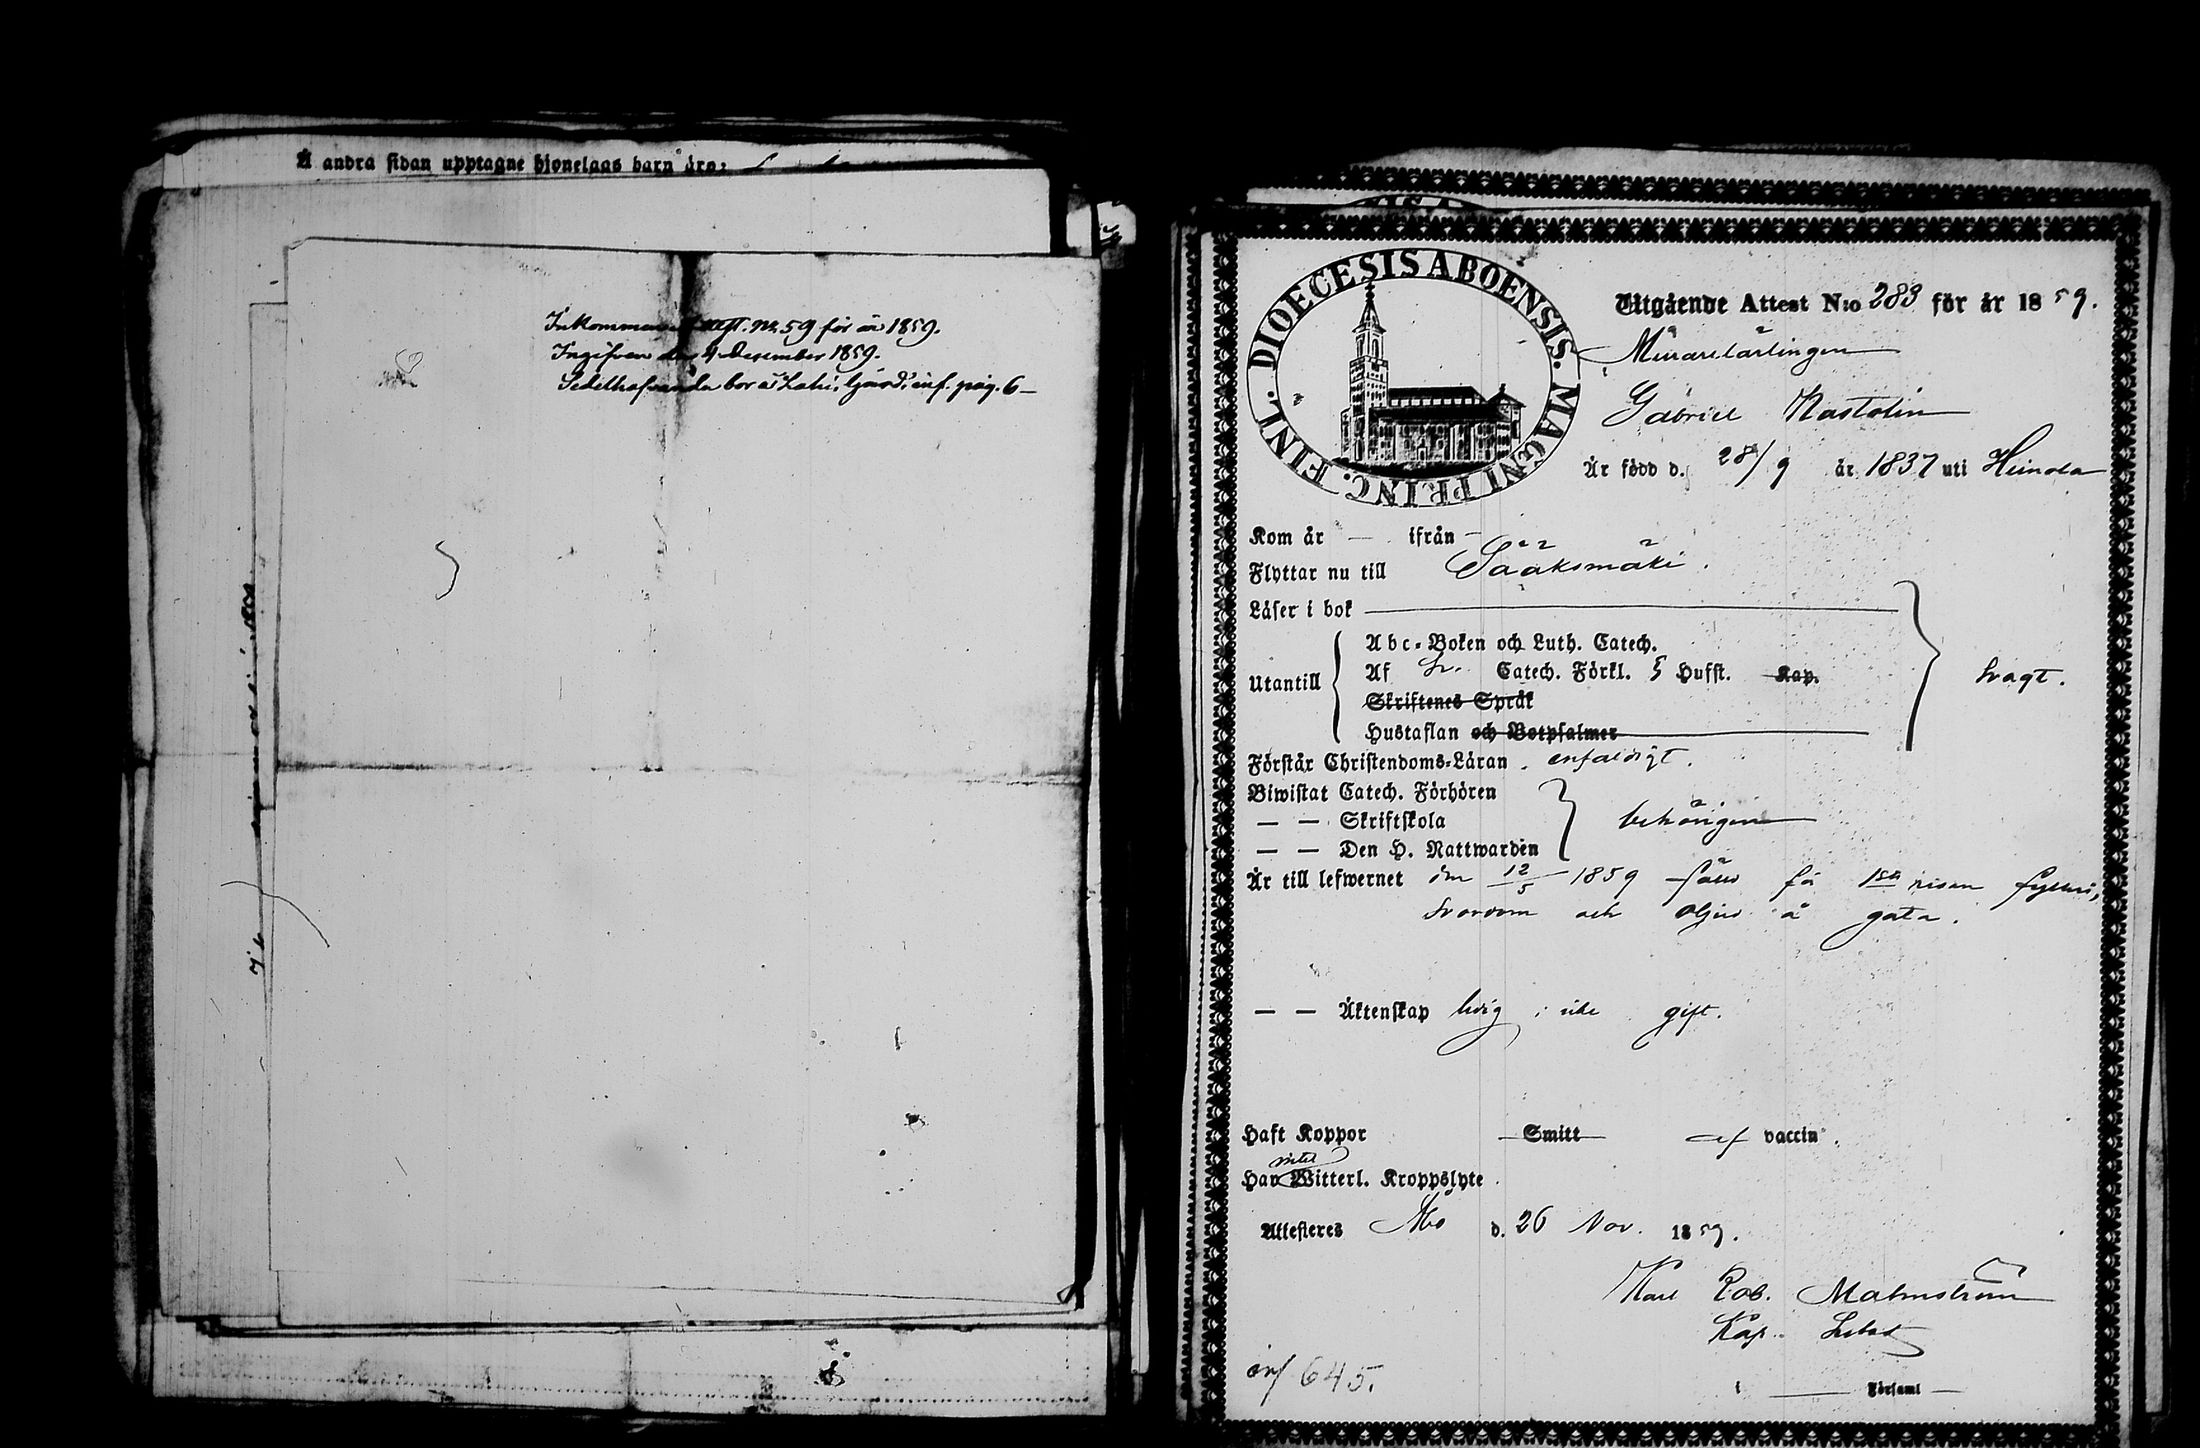 Å andra sidan upptagne hjonelags barn äro:
Inkommande att. nr. 59 för år 1859.
Ingifven den 4 December 1859.
Sedelhafvande bor å Lahi, gård, inf. pag. 6
DIOECESIS ABOENSIS. MAGNI PRINC. FINL.
Utgående Attest N:o 283 för år 1859.
Murarelärlingen
Gabriel Nastolin
Är född d. 28/9 år 1837 uti Heinola
Kom år — ifrån —
Flyttar nu till Sääksmäki.
Läser i bok
Abc-Boken och Luth. Catech.
Utantill Af Sv. Catech. Förkl. 5 Hufst. Kap. svagt.
Skriftenes Språk
Hustaflan och Botpsalmer
Förstår Christendoms-Läran enfaldigt.
Biwistat Catech. Förhören
— — Skriftskola behörigen
— — Den H. Nattwarden
Är till lefwernet den 12/5 1859 för 1sta fylleri,
svordom och oljud å gata.
— — Äktenskap ledig i icke gift.
Haft Koppor Smitt af vaccin.
intet
Har Witterl. Kroppslyte
Attesteres Åbo d. 26 Nov. 1859.
Karl Rob. Malmström
Kap.
inf 645.
i Församl